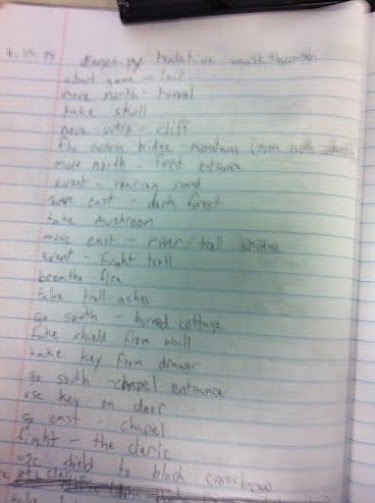 dragon.py tentative walkthrough
start game - lair
move north - tunnel
take skull
move west - cliff
fly across bridge - mountains
move north - forest entrance
event - roaring sound
move east - dark forest
take mushroom
move east - river/troll bridge
event - fight troll
breathe fire
take troll ashes
go south - burned cottage
take shield from wall
take key from drawer
go south - chapel entrance
use key on door
go east - chapel
fight - the cleric
use shield to block crossbow
take